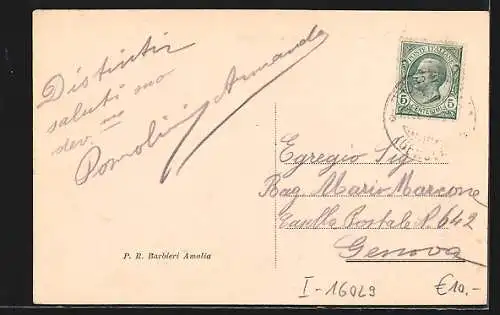 Distinti
saluti suo
dev. mo
Pomolini Armando
POSTE ITALIANE
5 CENTESIMI 5
Egregio Sig
Rag Mario Marcone
Casella Postale N. 642
Genova
P. R. Barbieri Amalia
I-16029
€10.-